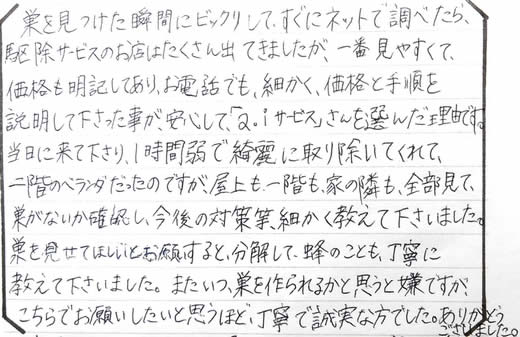 巣を見つけた瞬間にビックリして、すぐにネットで調べたら、
駆除サービスのお店はたくさん出てきましたが、一番見やすくて、
価格も明記してあり、お電話でも、細かく、価格と手順を
説明して下さった事が、安心して、「2.iサービス」さんを選んだ理由です。
当日に来て下さり、1時間弱で綺麗に取り除いてくれて、
二階のベランダだったのですが、屋上も、一階も、家の隣も、全部見て、
巣がないか確認し、今後の対策等、細かく教えて下さいました。
巣を見せてほしいとお願すると、分解して、蜂のことも、丁寧に
教えて下さいました。またいつ、巣を作られるかと思うと嫌ですが、
こちらでお願いしたいと思うほど、丁寧で誠実な方でした。ありがとう
ございました。